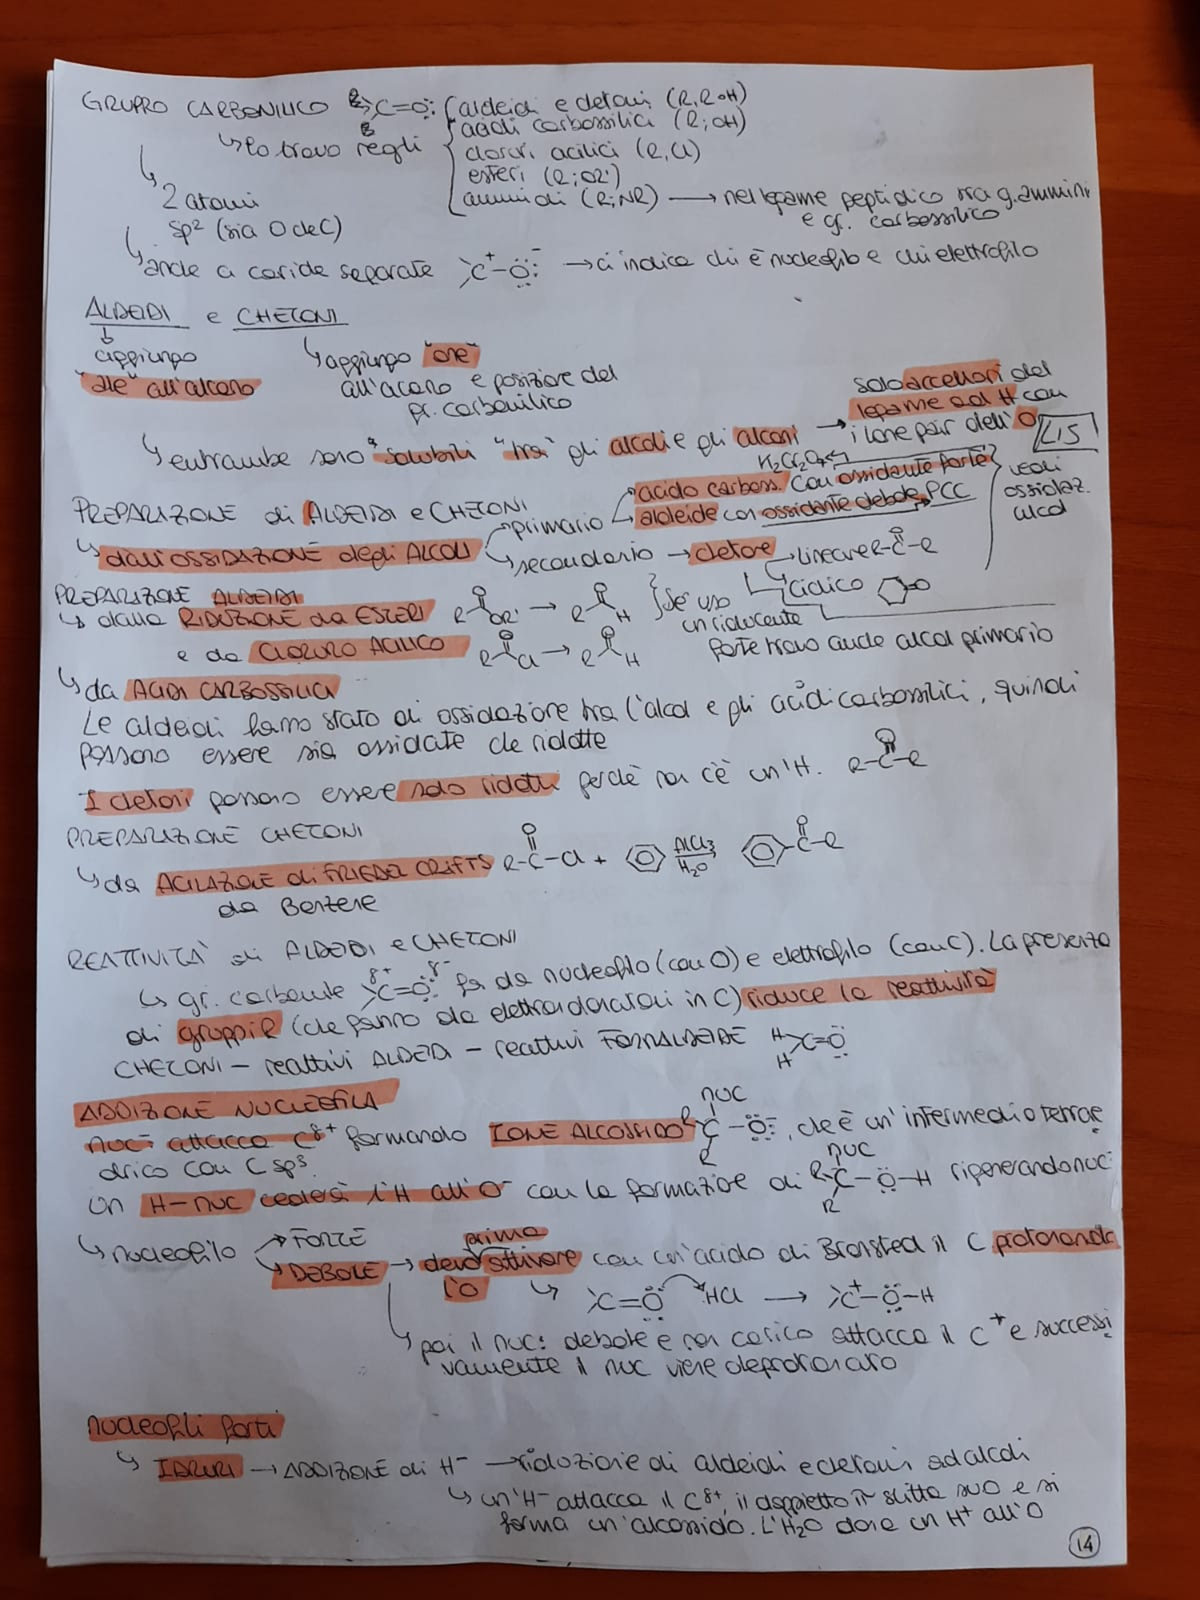 GRUPPO CARBONILICO R>C=O: { aldeidi e chetoni (R,R o H)
↳ lo trovo negli acidi carbossilici (R; OH)
cloruri acilici (R, Cl)
esteri (R; OR')
ammidi (R; NR) → nel legame peptidico tra g. ammini
e gr. carbossilico
2 atomi
sp² (sia O che C)
↳ anche a cariche separate >C⁺-O:⁻ → ci indica chi è nucleofilo e chi elettrofilo
ALDEIDI e CHETONI
aggiungo
"ale" all'alcano
↳ aggiungo "one"
all'alcano e posizione del
gr. carbonilico
↳ entrambe sono solubili "tra" gli alcoli e gli alcani →
solo accettori del
legame ad H con
i lone pair dell'O
L15
PREPARAZIONE di ALDEIDI e CHETONI
↳ dall'OSSIDAZIONE degli ALCOLI
primario
K₂Cr₂O₇
acido carboss. con ossidante forte
aldeide con ossidante debole, PCC
vedi
ossidaz.
alcol
secondario → chetone → lineare R-C-R
O
ciclico =O
PREPARAZIONE ALDEIDI
↳ dalla RIDUZIONE da ESTERI R OR' → R H
e da CLORURO ACILICO R Cl → R H
} Se uso
un riducente
forte trovo anche alcol primario
↳ da ACIDI CARBOSSILICI
Le aldeidi hanno stato di ossidazione tra l'alcol e gli acidi carbossilici, quindi
possono essere sia ossidate che ridotte
I chetoni possono essere solo ridotti perchè non c'è un'H. R-C-R
PREPARAZIONE CHETONI
↳ da ACILAZIONE di FRIEDEL CRAFTS R-C-Cl + AlCl₃ H₂O C-R
da Benzene
REATTIVITÀ di ALDEIDI e CHETONI
↳ gr. carbonile >C=O: δ⁺ δ⁻ fa da nucleofilo (con O) e elettrofilo (con C). La presenza
di gruppi R (che fanno da elettrondonatori in C) riduce la reattività
CHETONI - reattivi ALDEIDI - reattivi FORMALDEIDE H H >C=O
ADDIZIONE NUCLEOFILA
nuc:⁻ attacca C δ⁺ formando IONE ALCOSSIDO R R C nuc -O:⁻, che è un'intermedio tetrae
drico con C sp³.
Un H-nuc cederà l'H all'O⁻ con la formazione di R R C nuc -O-H rigenerando nuc:
↳ nucleofilo → FORTE
→ DEBOLE → devo prima attivare con un'acido di Bronsted il C protonando
l'O ↳ >C=O HCl → >C⁺-O-H
↳ poi il nuc: debole e non carico attacca il C⁺ e successi
vamente il nuc viene deprotonato
nucleofili forti
↳ IDRURI → ADDIZIONE di H⁻ → riduzione di aldeidi e chetoni ad alcoli
↳ un'H⁻ attacca il C δ⁺, il doppietto π slitta su O e si
forma un'alcossido. L'H₂O dona un H⁺ all'O
14